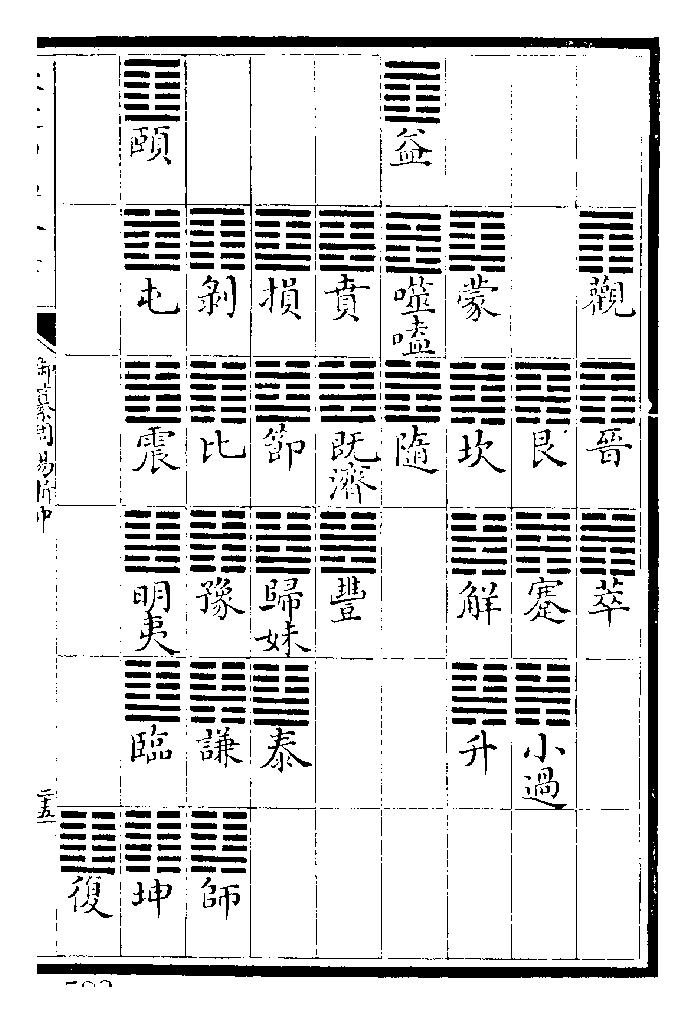 觀 晉 萃
艮 蹇 小過
蒙 坎 解 升
益 噬嗑 隨
賁 既濟 豐
損 節 歸妹 泰
剝 比 豫 謙 師
頤 屯 震 明夷 臨 坤
復
御纂周易折中